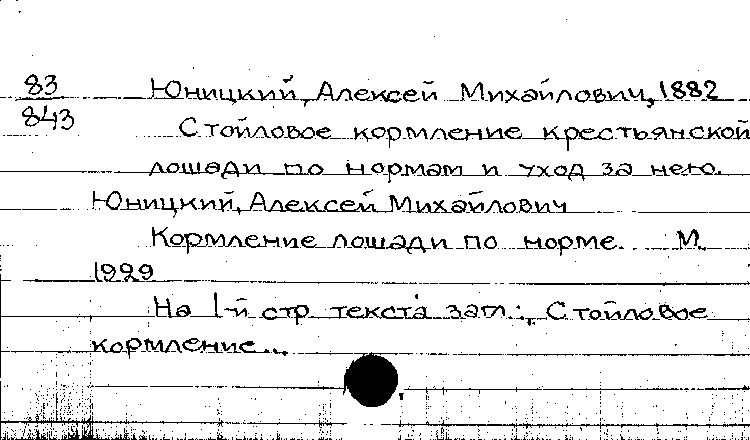 83 Юницкий, Алексей Михайлович, 1882
843 Стойловое кормление крестьянской
лошади по нормам и уход за нею.
Юницкий, Алексей Михайлович
Кормление лошади по норме. М.
1929
На 1-й стр текста загл: „Стойловое
кормление...